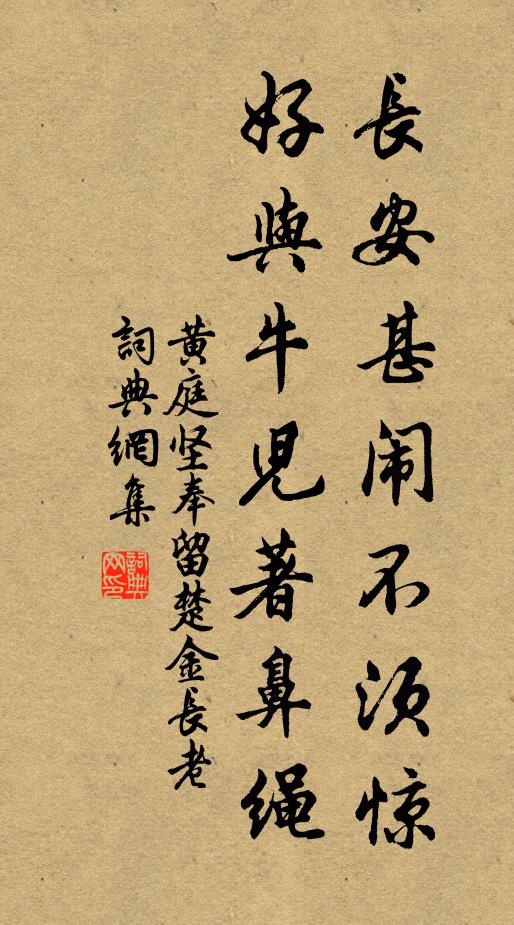 長安甚闹不須惊
好與牛児著鼻绳
黄庭坚奉留楚金長老
詞典網集
詞典网印